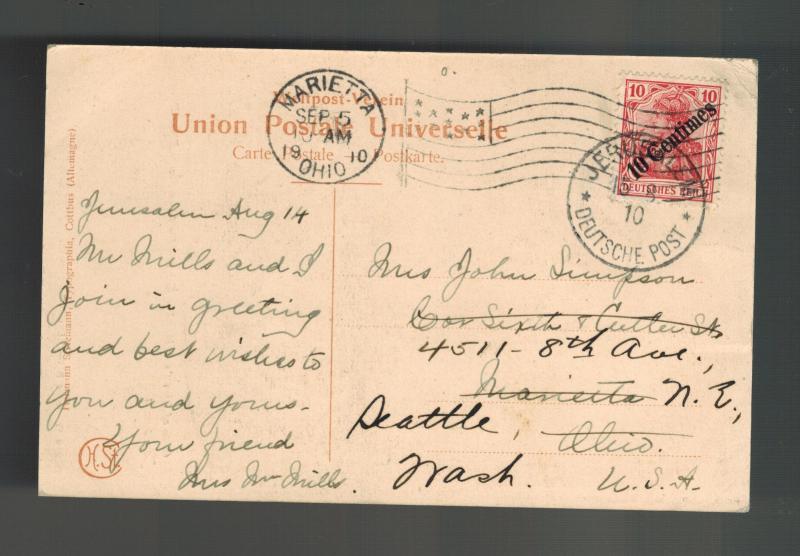 MARIETTA
SEP 5
10 AM
1910
OHIO
Weltpost-Verein
Union Postale Universelle
Carte Postale — Postkarte.
10 10
10 Centimes
DEUTSCHES REICH
10
DEUTSCHE POST
Typographia, Cottbus (Allemagne)
Jerusalem Aug 14
Mr Mills and I
join in greeting
and best wishes to
you and yours.
Your friend
Mrs Wm Mills.
Mrs John Simpson
Cor Sixth & Cutler Sts
4511-8th Ave.,
Marietta N.E.,
Seattle, Ohio.
Wash. U.S.A.
H.St.